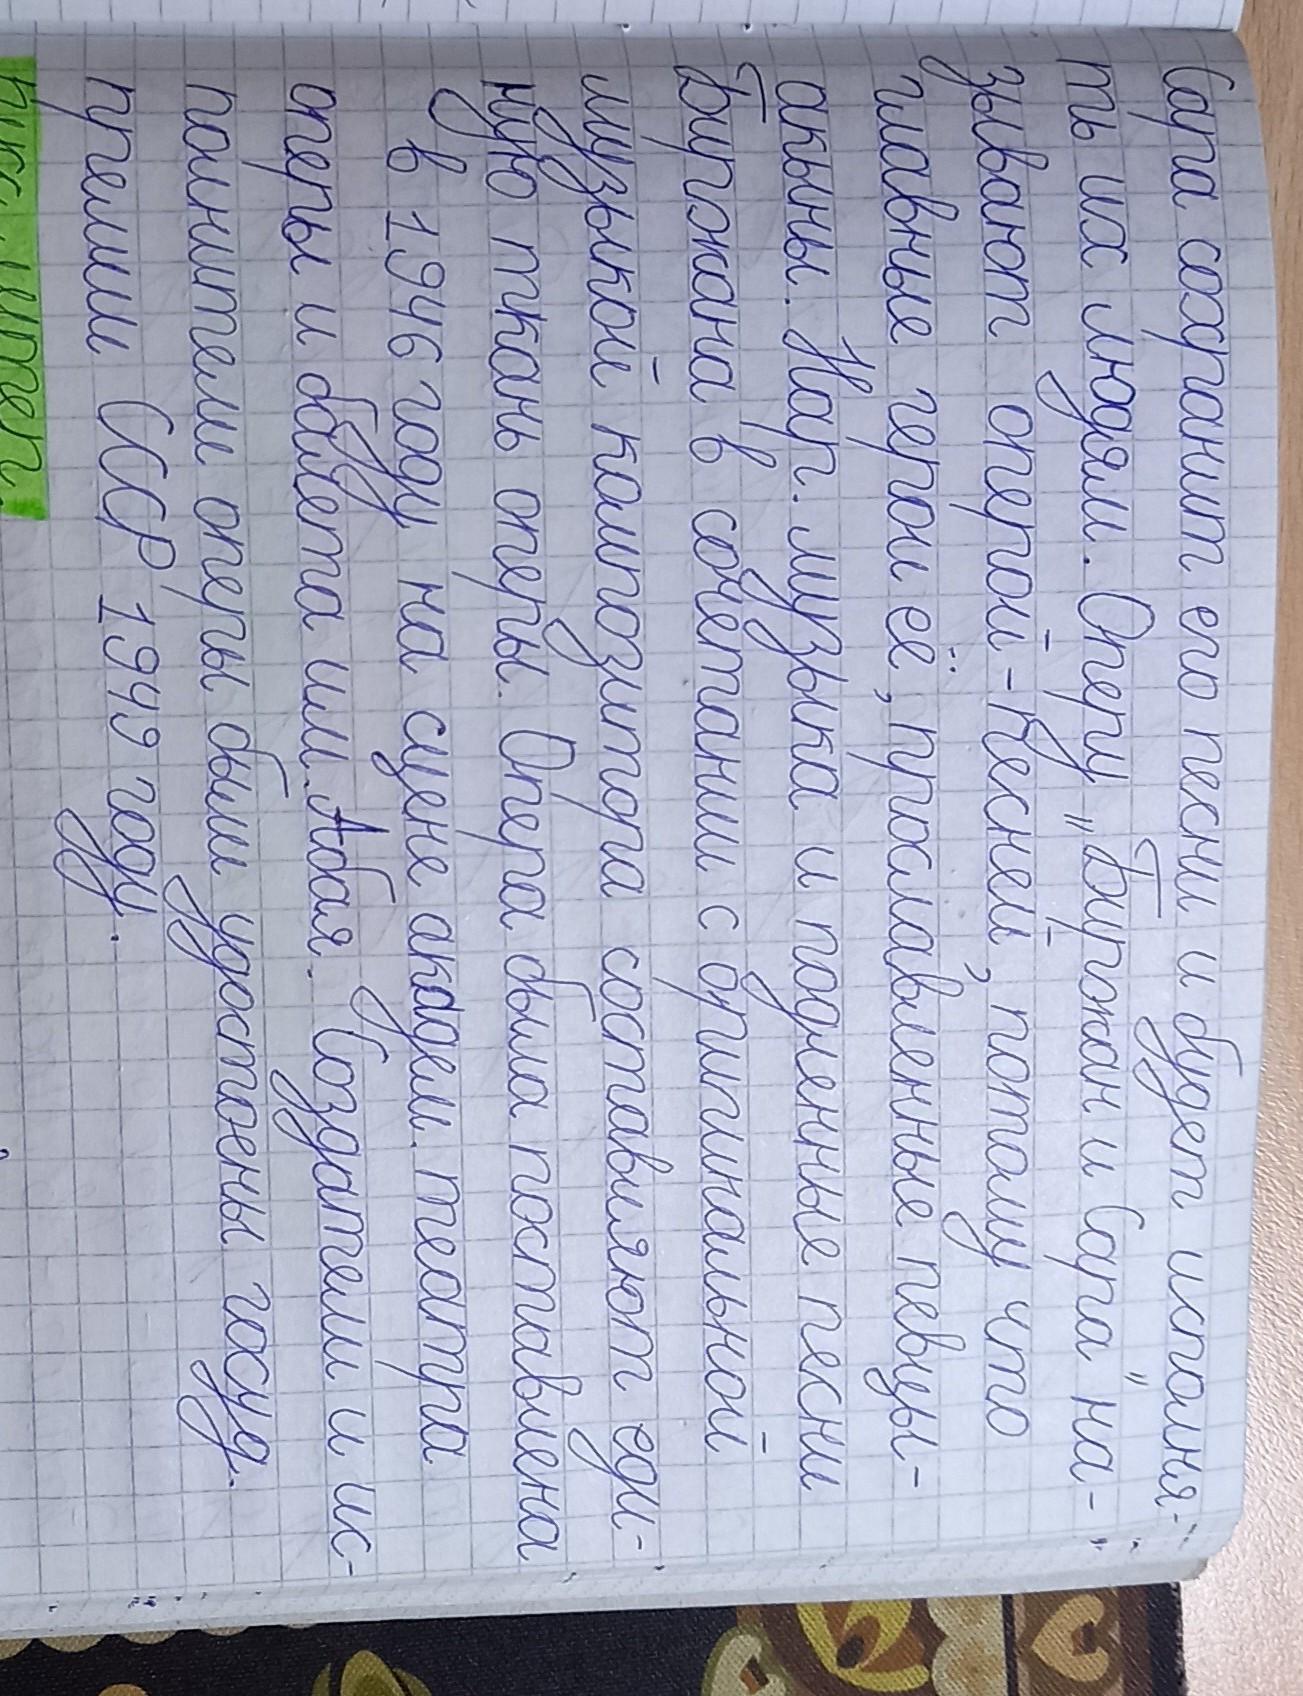 Сара сохранит его песни и будет исполня-
ть их людям. Оперу "Биржан и Сара" на-
зывают оперой-песней, потому что
главные герои её, прославленные певцы-
акыны. Нар. музыка и подленные песни
Биржана в сочетании с оригинальной
музыкой композитора составляют еди-
ную ткань оперы. Опера была поставлена
в 1946 году на сцене академ. театра
оперы и балета им. Абая. Создатели и ис-
полнители оперы были удостоены госуд.
премии СССР 1949 году.